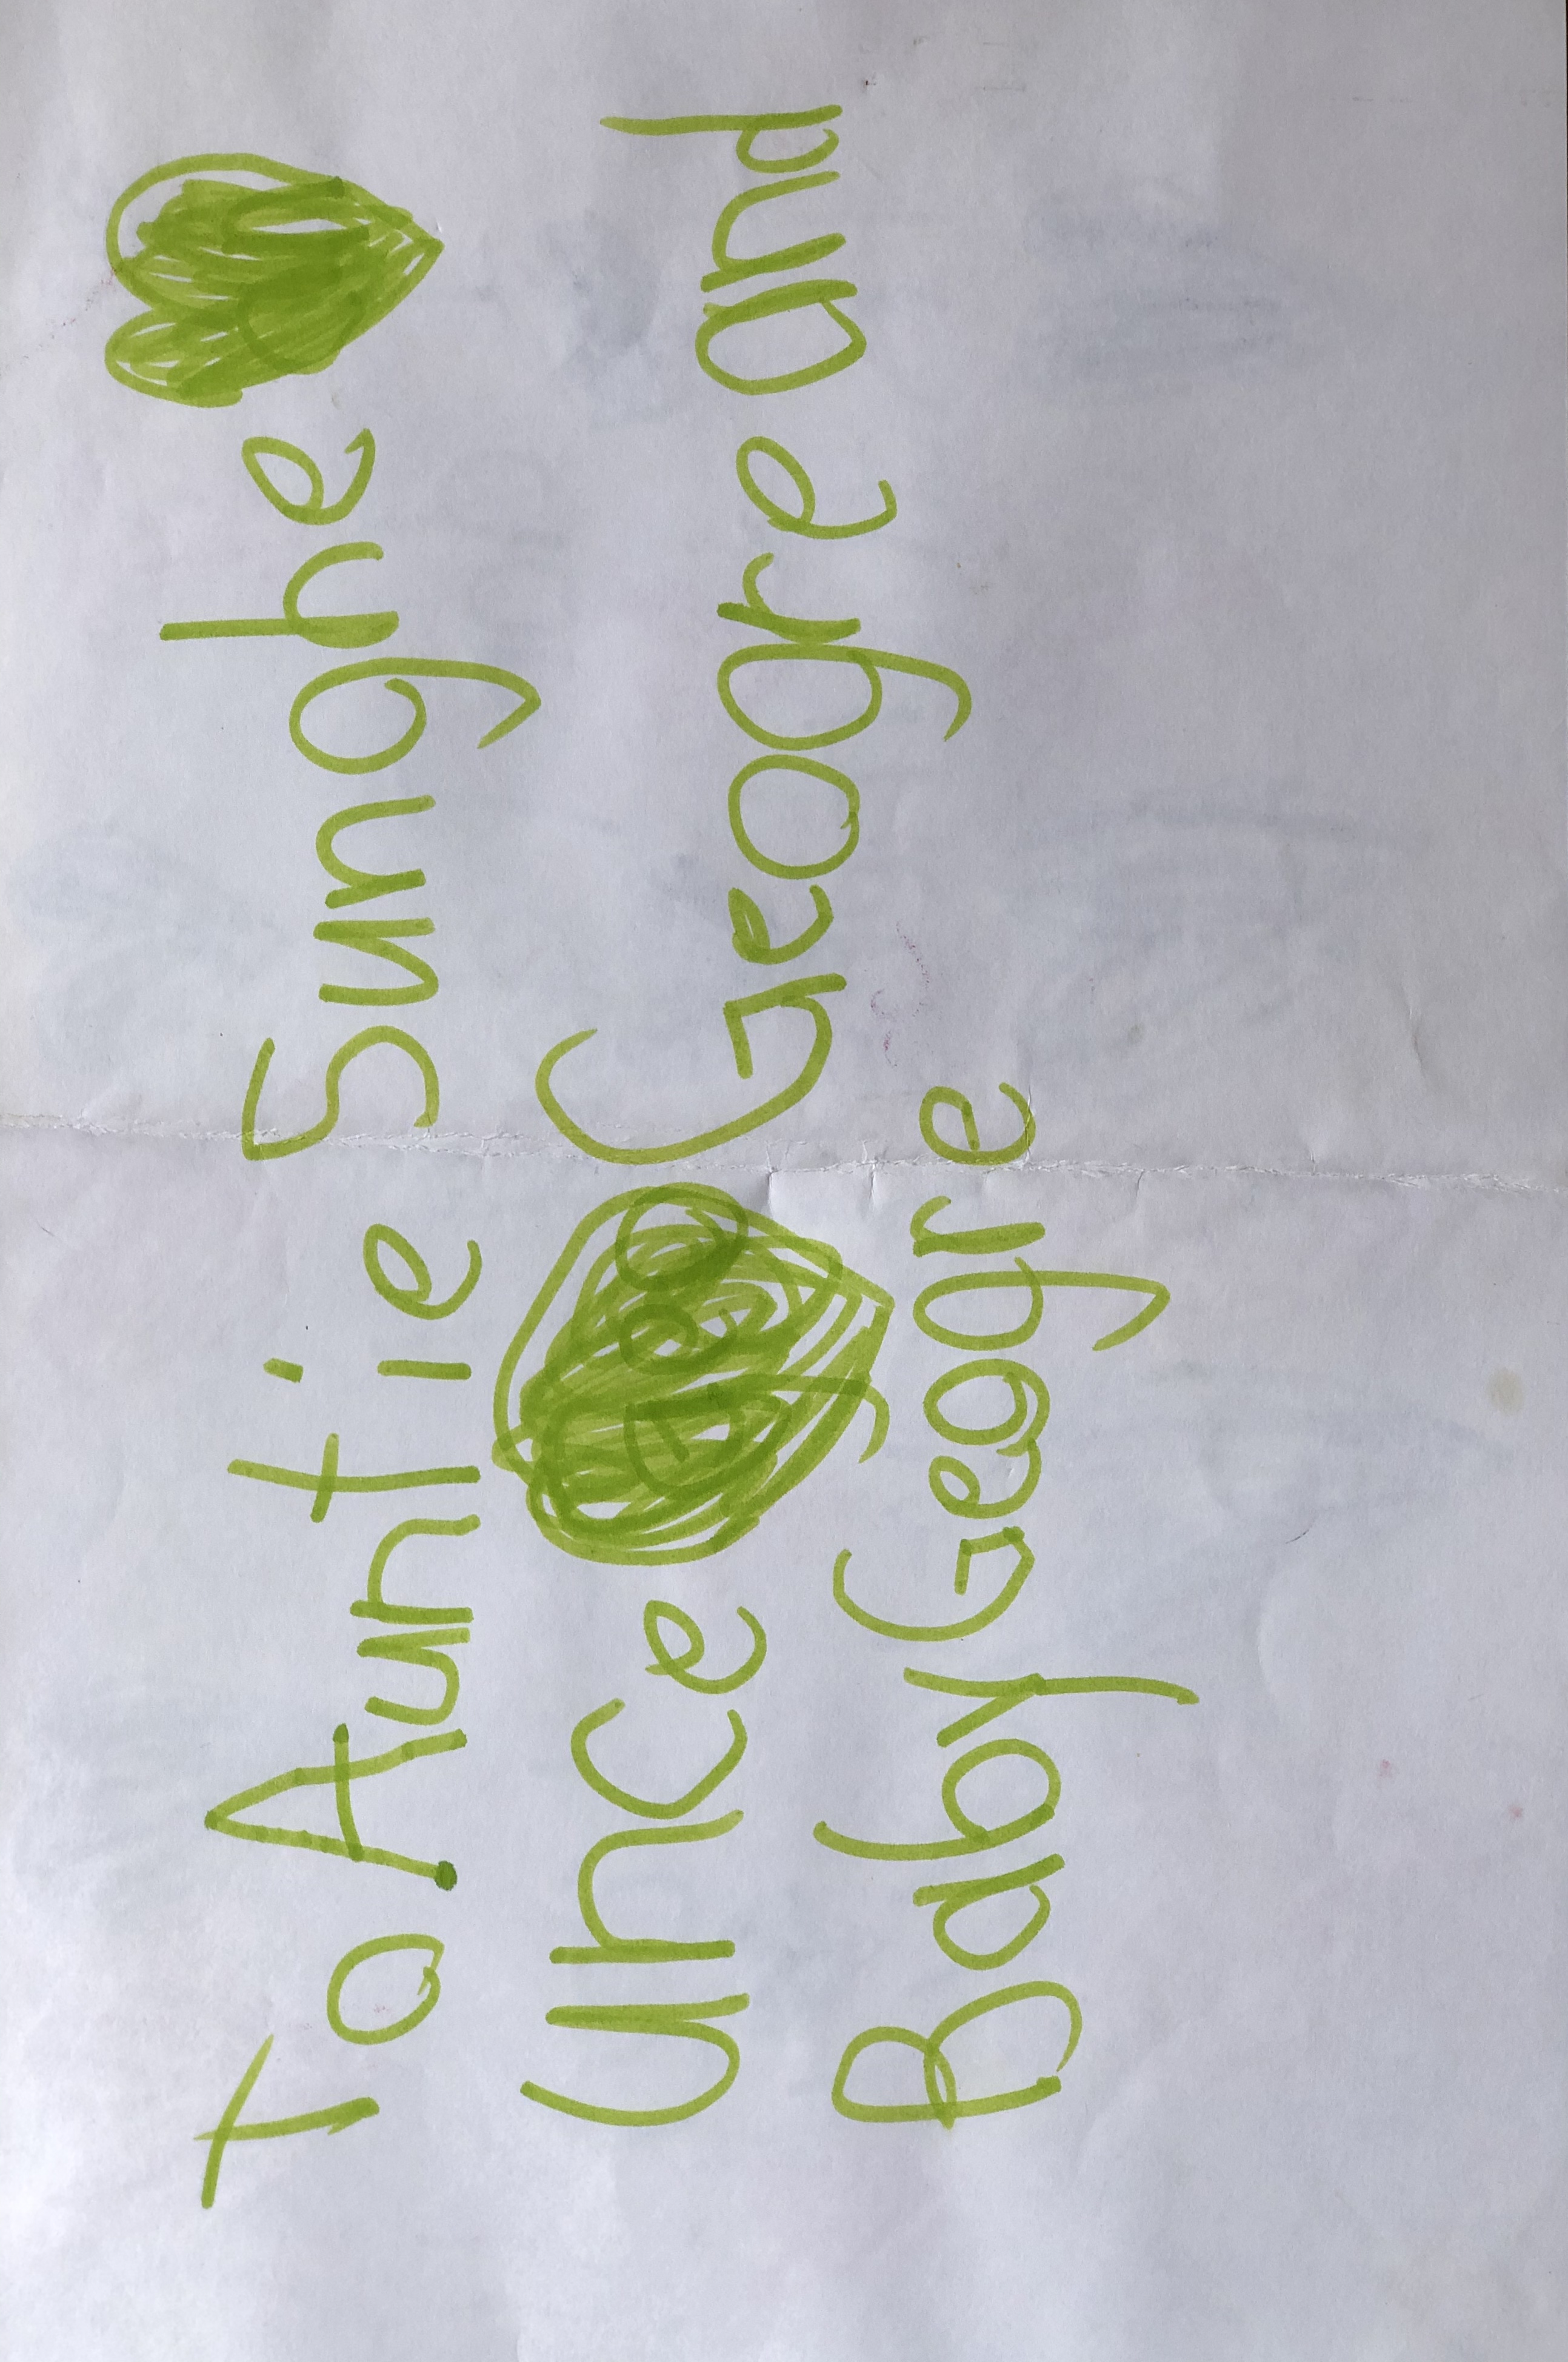 To Auntie Sunghe
Unce Geogre and
Baby Geogre